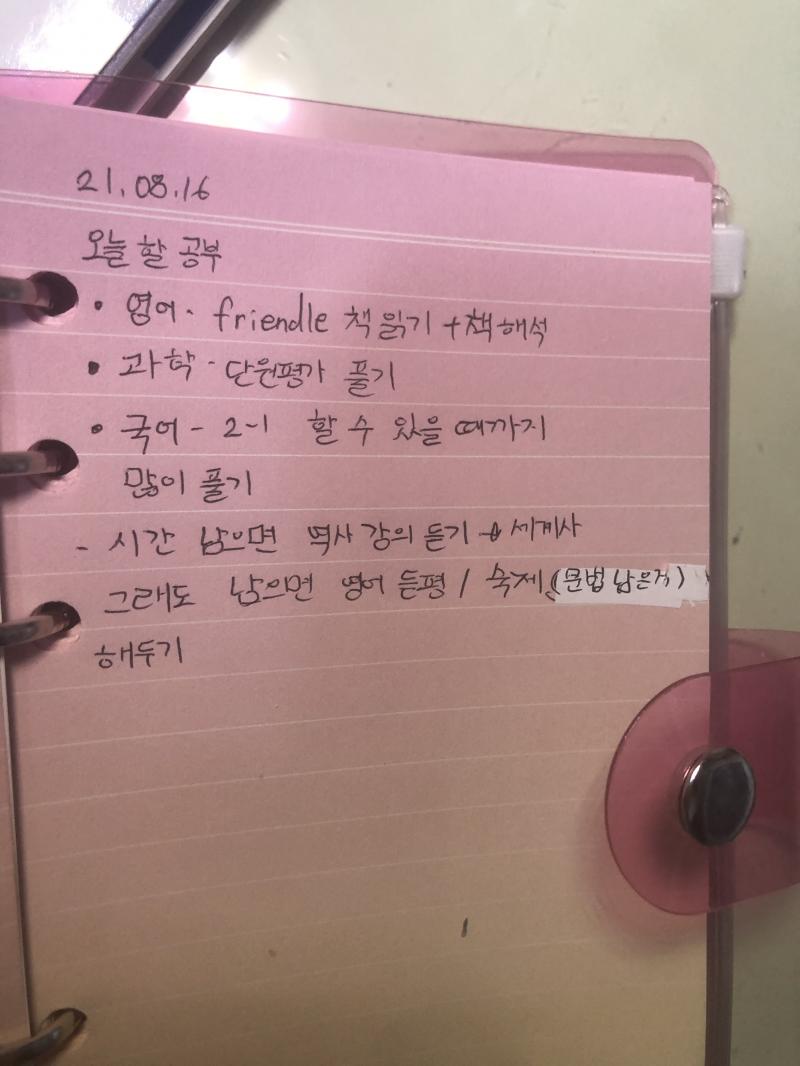 21.08.16
오늘 할 공부
• 영어 - friendle 책 읽기 + 책 해석
• 과학 - 단원평가 풀기
• 국어 - 2-1 할 수 있을 때까지
많이 풀기
- 시간 남으면 역사 강의 듣기 + 세계사
그래도 남으면 영어 듣평 / 숙제 (문법 남은거)
해두기